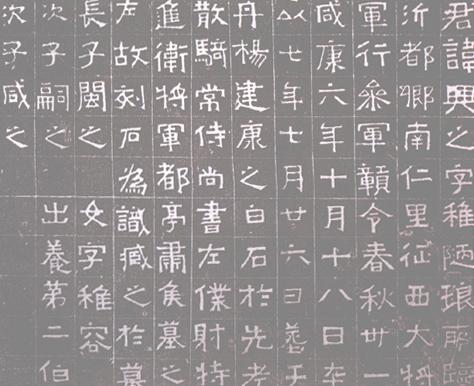 君諱興之字稚陋琅耶臨
沂都鄉南仁里征西大將
軍行參軍贛令春秋卅一
咸康六年十月十八日卒
以七年七月廿六日葬于
丹楊建康之白石於先考
散騎常侍尚書左僕射特
進衛將軍都亭肅侯墓之
左故刻石為識臧之於墓
長子閩之 女字稚容
次子嗣之 出養第二伯
次子咸之